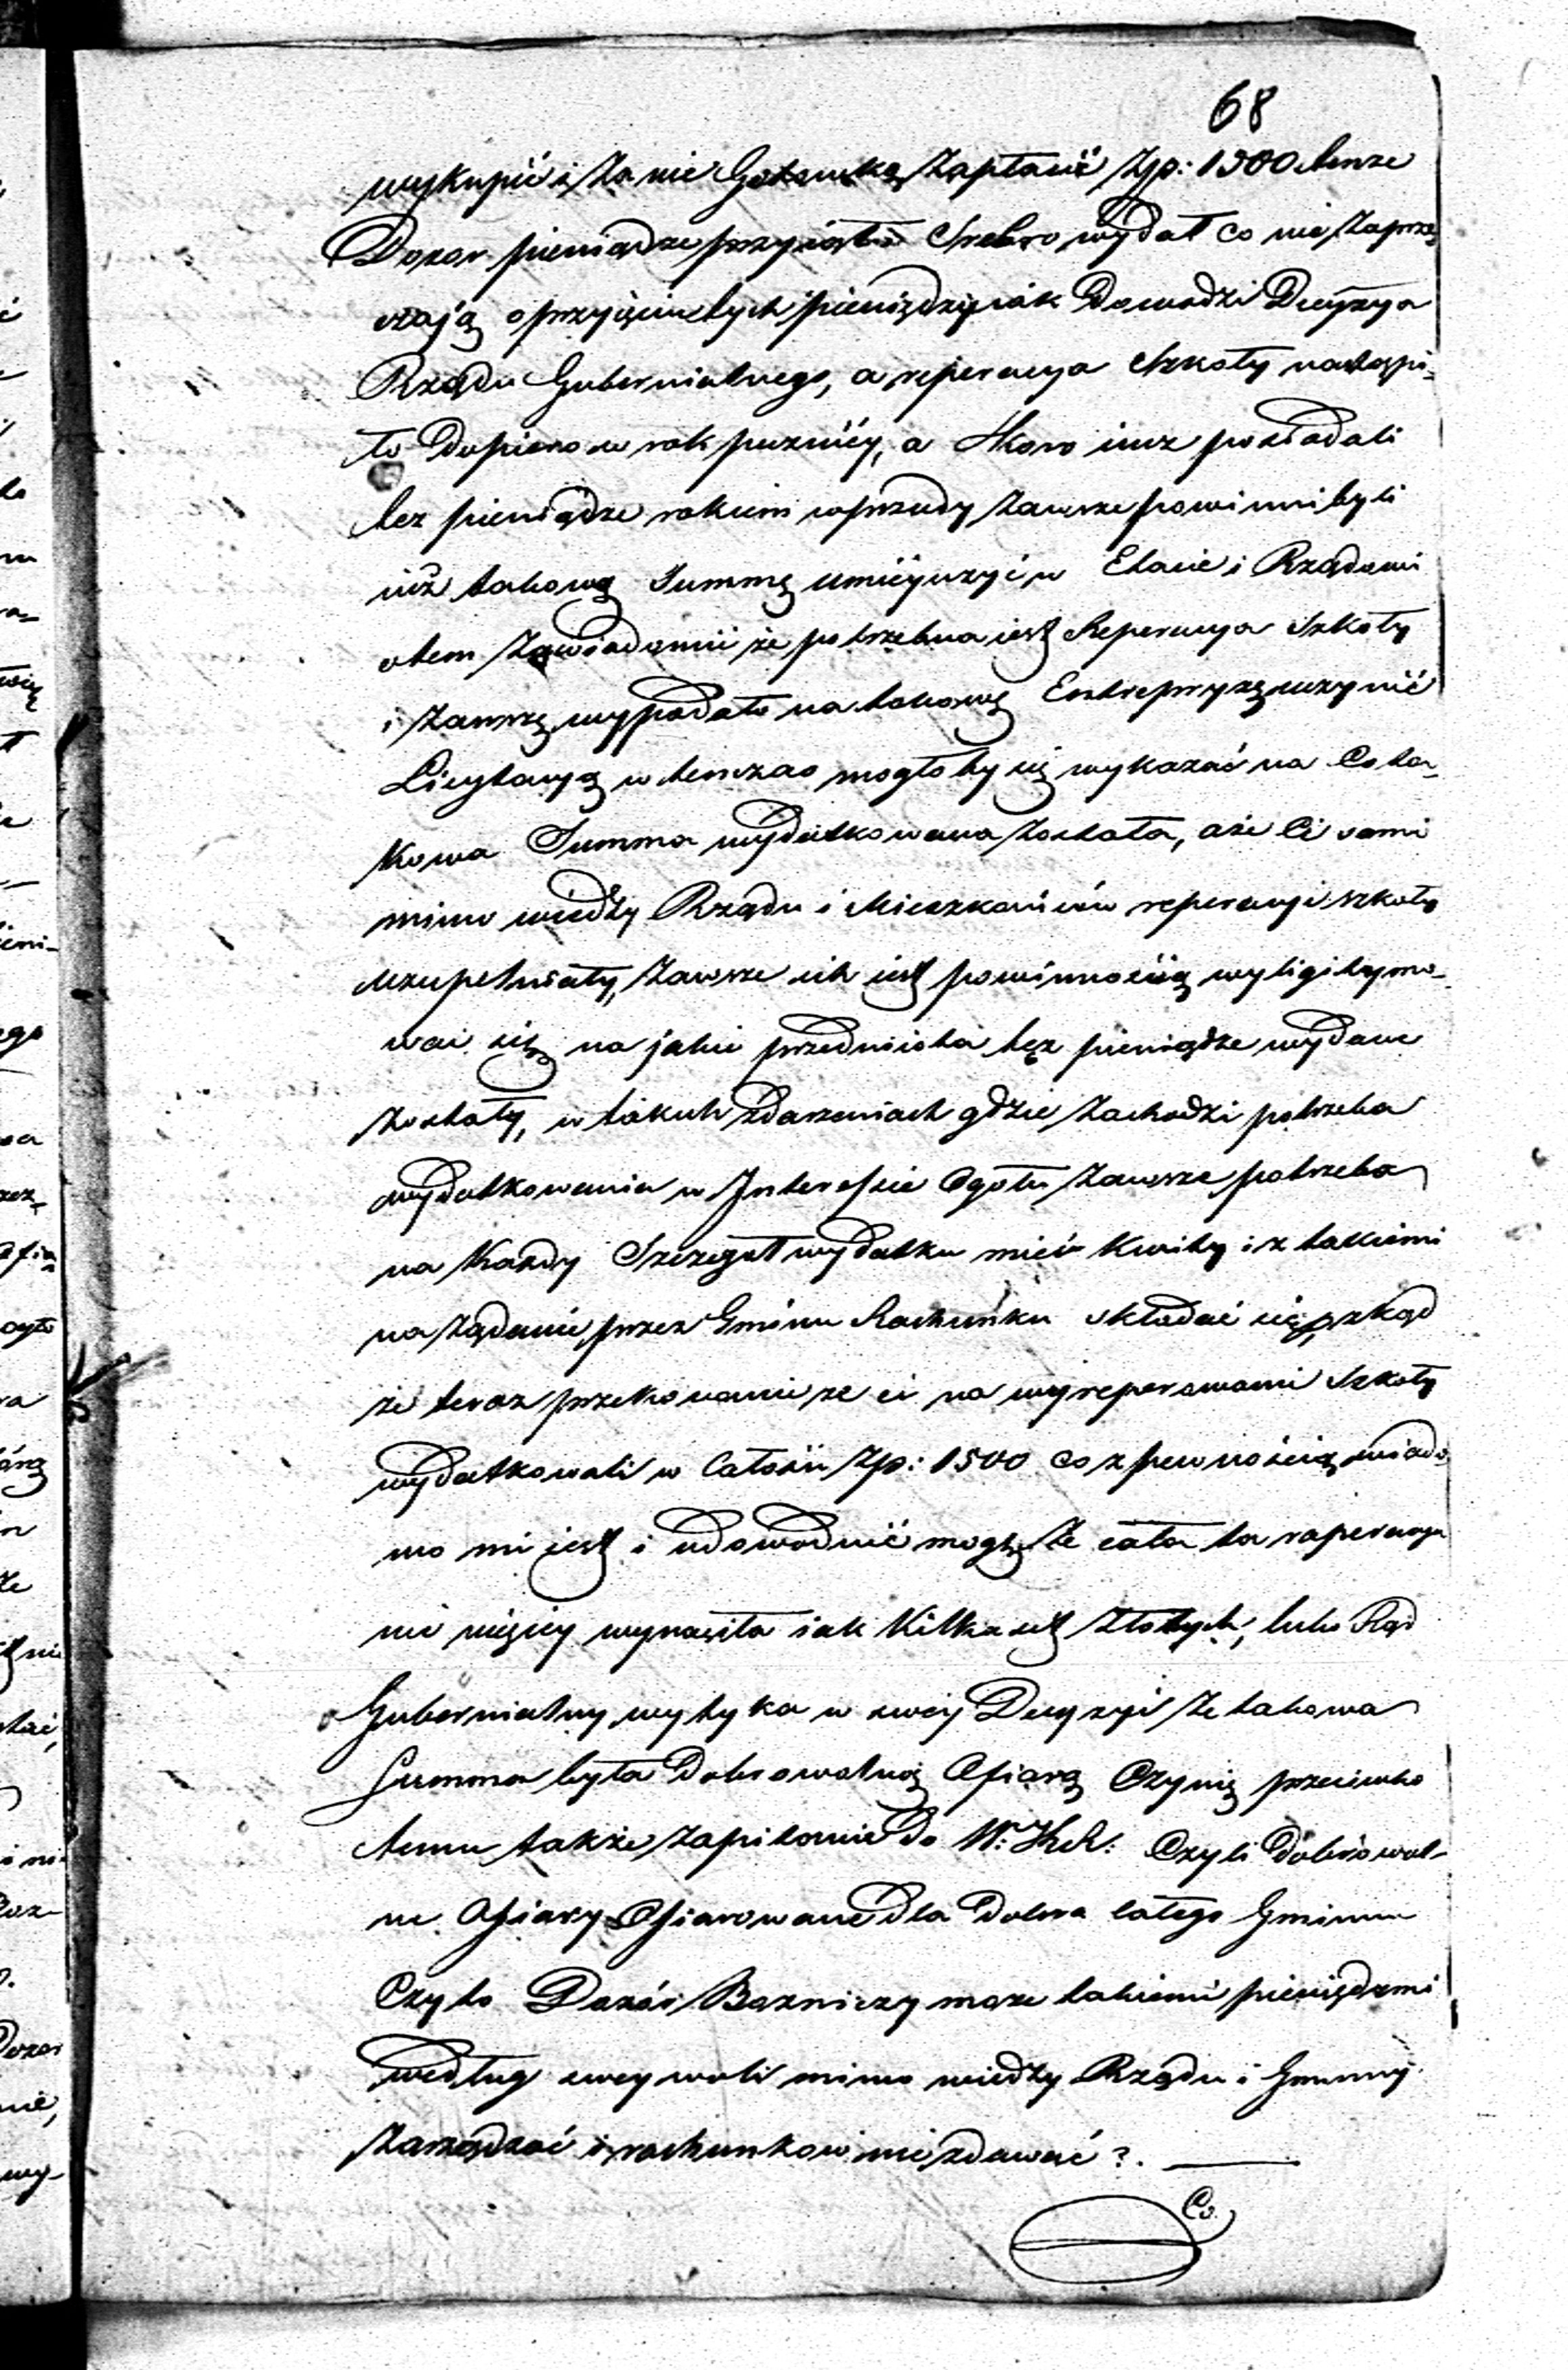 68
wykupić i za nie Gotowką zapłacić Złp: 1500 tenze
Dozor pieniądze przyiął i Srebro wydał co nie zaprze-
czają o przyięciu tych pieniędzy iak Dowodzi Decyzya
Rządu Gubernialnego, a reperacya Szkoły nastąpi-
ło Dopiero w rok puzniey, a Skoro iusz posiadali
tez pieniądze rokiem wprzudy zawsze powinni byli
iuż takową Summę umieyczyć w Etacie i Rządowi
otem zawiadomić że potrzebna iest Reperacya Szkoły
i zawszę wypadało na takową Entrepryzę uczynić
Licytacyą w tenczas mogło by się wykazać na Co ta-
kowa Summa wydatkowana została, aże Ci sami
mimo wiedzy Rządu i Mieszkańców reperacyi szkoły
uzupełniały, zawsze ich iest powinnością wyligitymo-
wać się na jakie przedmiota tęż pieniądze wydane
zostały, w takich zdarzeniach gdzie zachodzi potrzeba
wydatkowania w Interessie Ogółu zawsze potrzeba
na Każdy Szczeguł wydatku mieć Kwity i z takiemi
na żądanie przez Gminu Rachunku składać się, zkąd
że teraz przekonanie ze ci na wyreperowani Szkoły
wydatkowali w Całości Złp: 1500 co z pewnością wiado-
mo mi iest i udowodnić mogę, Że cała ta raperacya
nie więcy wynosiła iak Kilka set złotych, lubo Rąd
Gubernialny wytyka w swey Decyzyi że takowa
Summa była Dobrowolną Ofiarą Czynię przeciwko
temu także zapitanie do W: Czyli Dobrowol-
ne Ofiary Ofiarowane Dla Dobra całego Gminu
Czyto Dozór Bozniczy moze takiemi pieniędzmi
według swey woli mimo wiedzy Rządu i Gminny
zarządzać i rachunkow nie zdawać ?.
Co.